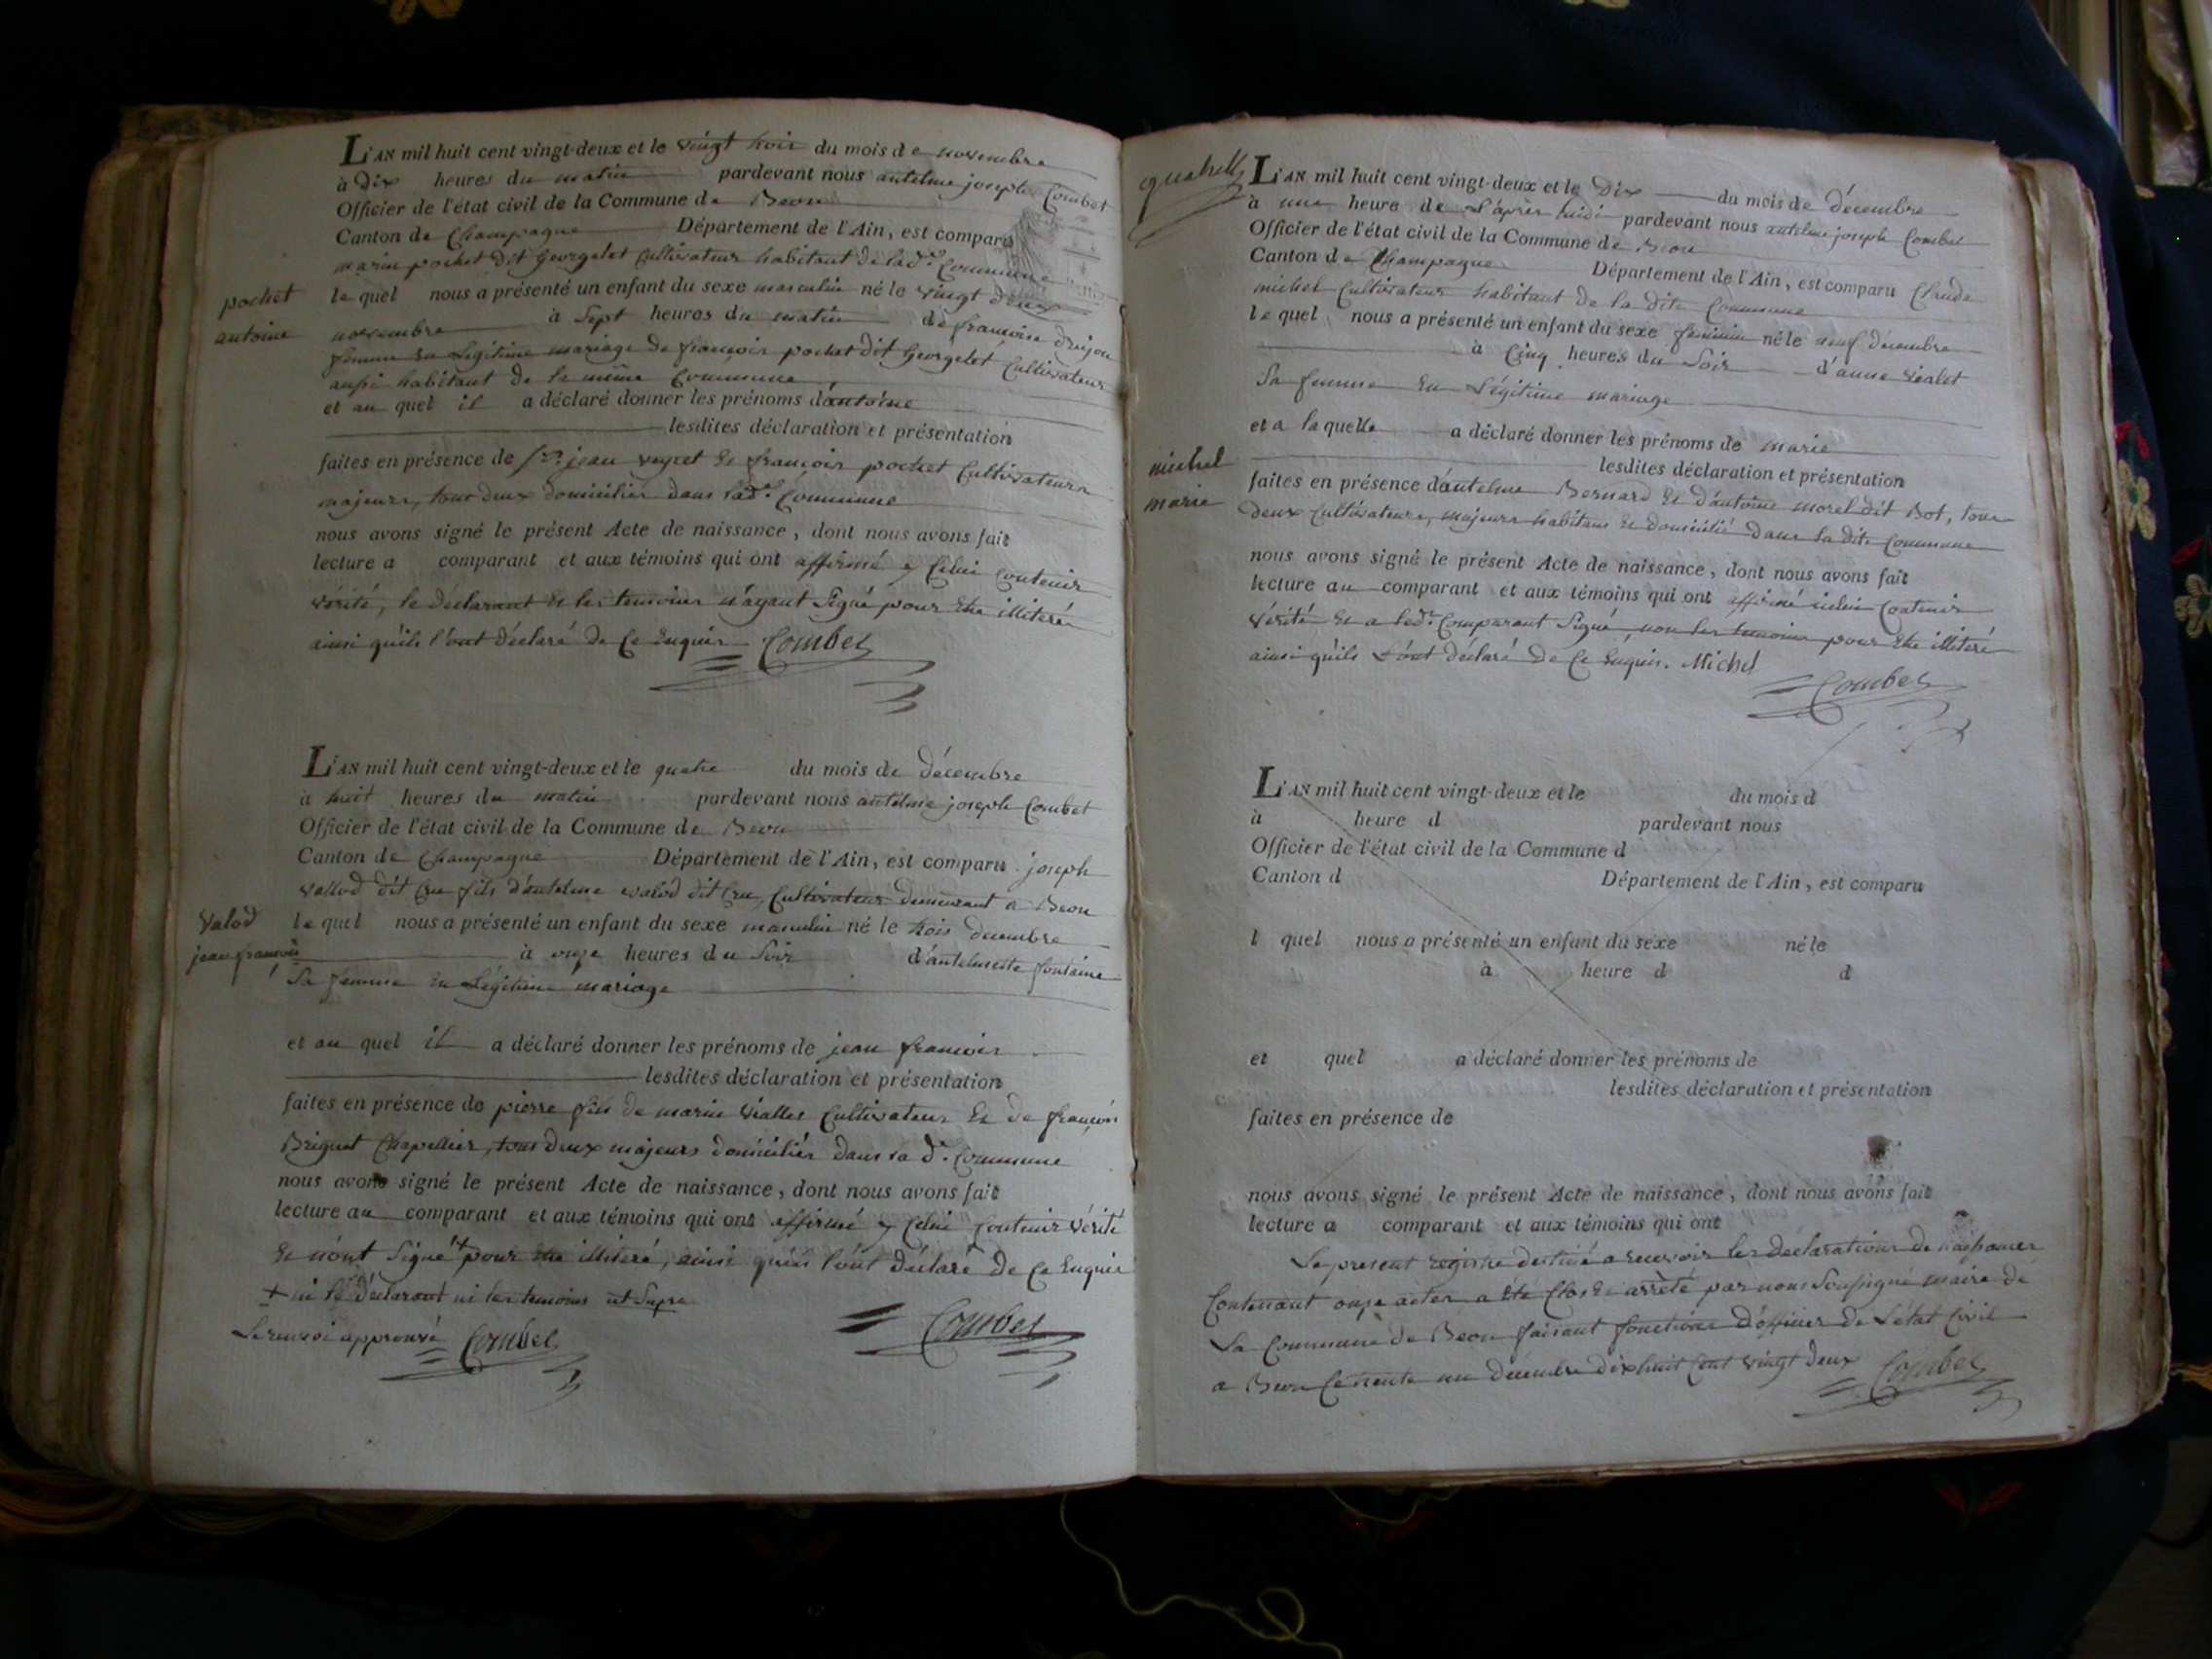 L'AN mil huit cent vingt-deux et le vingt trois du mois de novembre
à Dix heures du matin pardevant nous antelme joseph Combet
Officier de l'état civil de la Commune de Beon
Canton de Champagne Département de l'Ain, est comparu
marin pochet dit Georgelet Cultivateur habitant de lad.e Commune
pochet
antoine
le quel nous a présenté un enfant du sexe masculin né le vingt deux
novembre à Sept heures du matin de françoise
femme en Légitime mariage de françois pochet dit Georgelet Cultivateur
aussi habitant de la même Commune
et au quel il a déclaré donner les prénoms d'antoine
lesdites déclaration et présentation
faites en présence de jean et françois pochet Cultivateurs
majeurs, tous deux domiciliés dans lad.e Commune
nous avons signé le présent Acte de naissance, dont nous avons fait
lecture a comparant et aux témoins qui ont affirmé y Celui Contenir
vérité, le déclarant et les temoins n'ayant Signé pour Etre illiterés
ainsi qu'ils l'ont déclaré de Ce Enquis Combet
L'AN mil huit cent vingt-deux et le quatre du mois de décembre
à huit heures du matin pardevant nous antelme joseph Combet
Officier de l'état civil de la Commune de Beon
Canton de Champagne Département de l'Ain, est comparu joseph
vallod dit Cru fils d'antelme valod dit Cru, Cultivateur demeurant a Beon
Valod
jean françois
le quel nous a présenté un enfant du sexe masculin né le trois decembre
à onze heures du Soir d'antelmette fontaine
Sa femme en Légitime mariage
et au quel il a déclaré donner les prénoms de jean françois
lesdites déclaration et présentation
faites en présence de pierre fils de marin vialles Cultivateur et de françois
Briguet Chapellier, tous deux majeurs domiciliés dans la d.e Commune
nous avons signé le présent Acte de naissance, dont nous avons fait
lecture au comparant et aux témoins qui ont affirmé y Celui Contenir vérité
et n'ont Signé + pour etre illiteré, ainsi qu'ils l'ont déclaré de Ce Enquis
+ ni le déclarant ni les temoins ut Supra
Le renvoi approuvé Combet
Combet
L'AN mil huit cent vingt-deux et le Dix du mois de décembre
à une heure de L'après midi pardevant nous antelme joseph Combet
Officier de l'état civil de la Commune de Beon
Canton de Champagne Département de l'Ain, est comparu Claude
michel Cultivateur habitant de la dite Commune
le quel nous a présenté un enfant du sexe feminin né le neuf décembre
à Cinq heures du Soir d'anne vialet
Sa femme en Légitime mariage
et a laquelle a déclaré donner les prénoms de marie
michel
marie
lesdites déclaration et présentation
faites en présence d'antelme Bernard et d'antoine morel dit Bot, tous
deux Cultivateurs, majeurs habitans et domicilié dans la dite Commune
nous avons signé le présent Acte de naissance, dont nous avons fait
lecture au comparant et aux témoins qui ont affirmé icelui Contenir
vérité et a led.t Comparant Signé, non les temoins pour Etre illiteré
ainsi qu'ils l'ont déclaré de Ce Enquis. Michel
Combet
L'AN mil huit cent vingt-deux et le du mois d
à heure d pardevant nous
Officier de l'état civil de la Commune d
Canton d Département de l'Ain, est comparu
l quel nous a présenté un enfant du sexe né le
à heure d d
et quel a déclaré donner les prénoms de
lesdites déclaration et présentation
faites en présence de
nous avons signé le présent Acte de naissance, dont nous avons fait
lecture a comparant et aux témoins qui ont
Le present registre destiné a recevoir les declarations de naissances
Contenant onze actes a été Clos et arrêté par nous Soussigné maire de
La Commune de Beon faisant fonctions d'officier de L'état Civil
a Beon Ce trente un decembre dix huit Cent vingt deux Combet